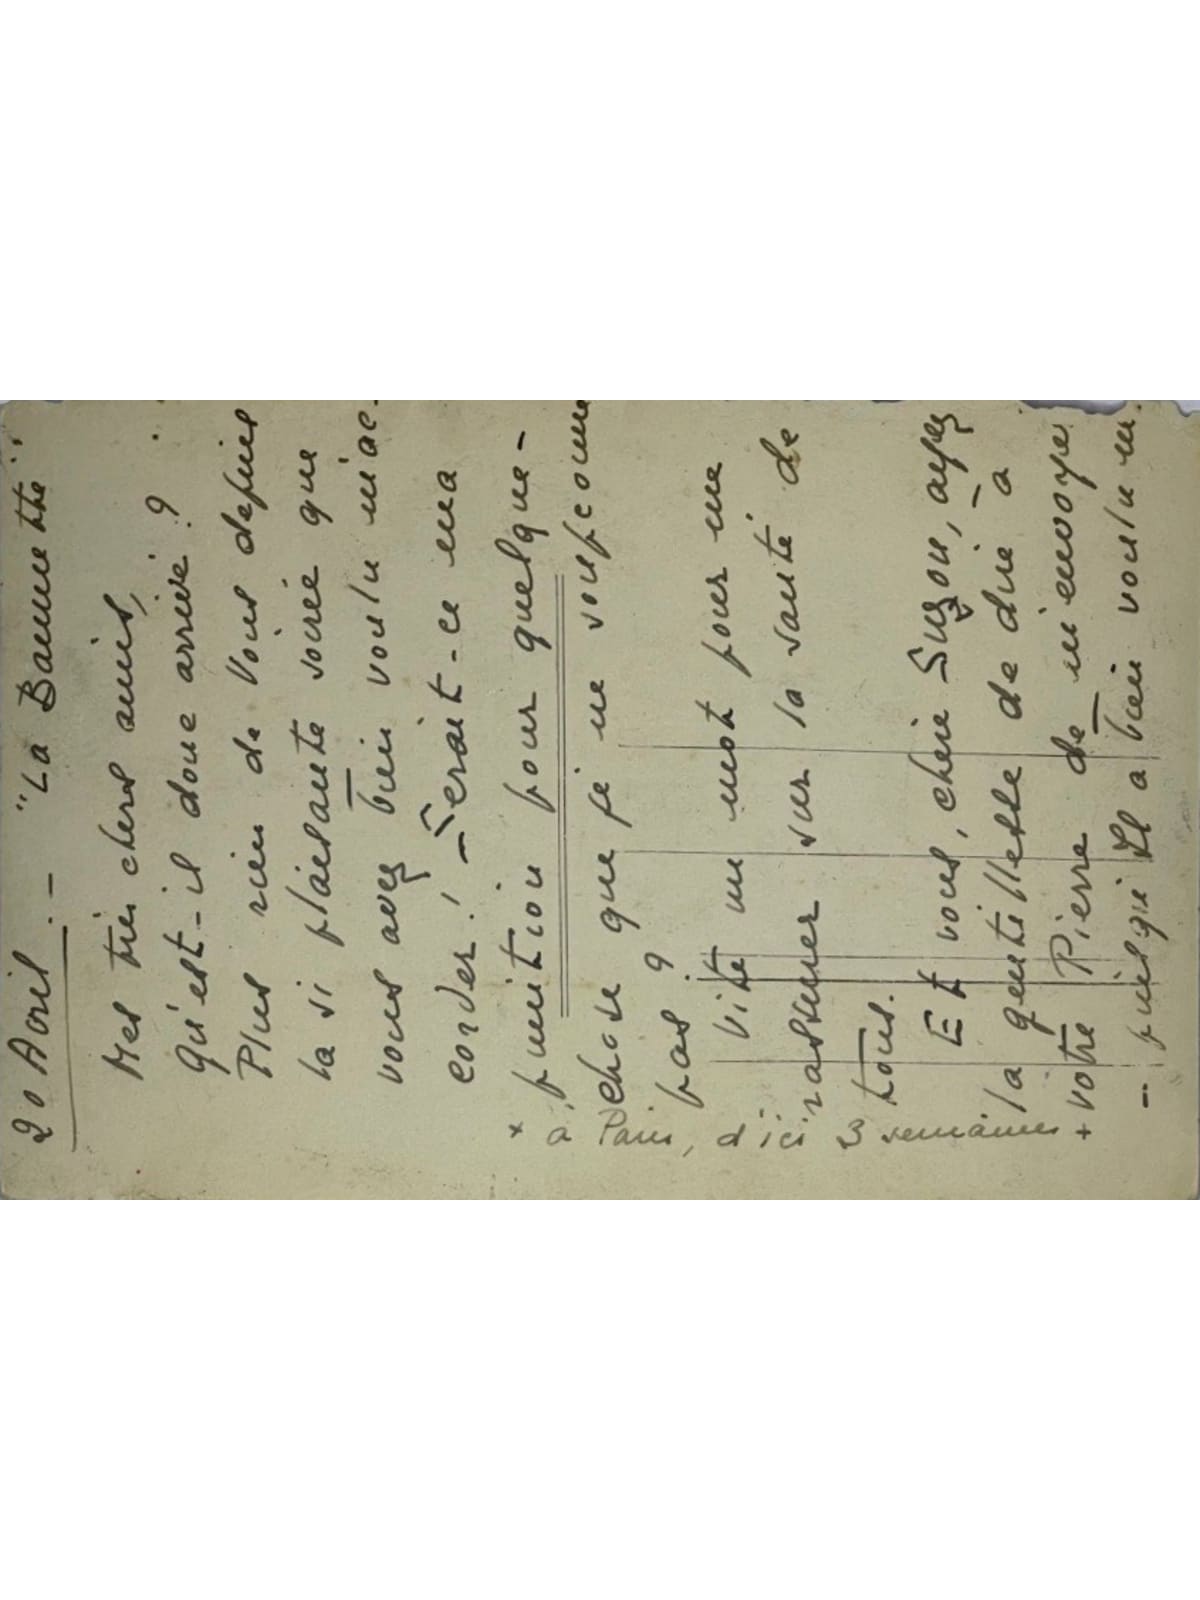 20 Avril . — "La Baumette"
Mes très chers amis,
Qu'est-il donc arrivé ?
Plus rien de vous depuis
la si plaisante soirée que
vous avez bien voulu m'ac-
corder ! — Serait-ce ma
punition pour quelque-
chose que je ne soupçonne
pas ?
Vite un mot pour me
rassurer sur la santé de
tous.
Et vous, chère Suzon, ayez
la gentillesse de dire à
votre Pierre de m'envoyer
— puisqu'Il a bien voulu m
+ à Paris, d'ici 3 semaines +